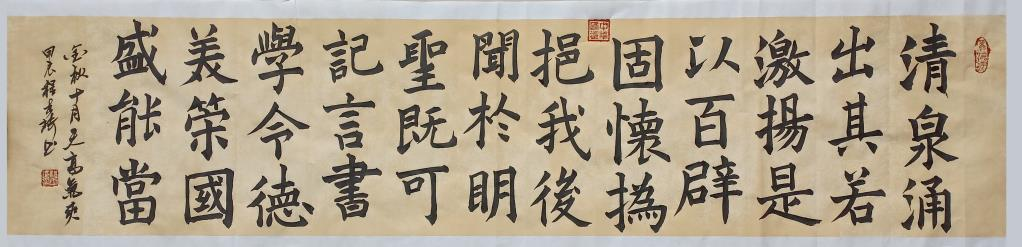 清泉涌
出其若
激揚是
以百辟
固懷撝
挹我後
聞於明
聖既可
記言書
學令德
美策國
盛能當
金秋十月天高氣爽
甲辰程书